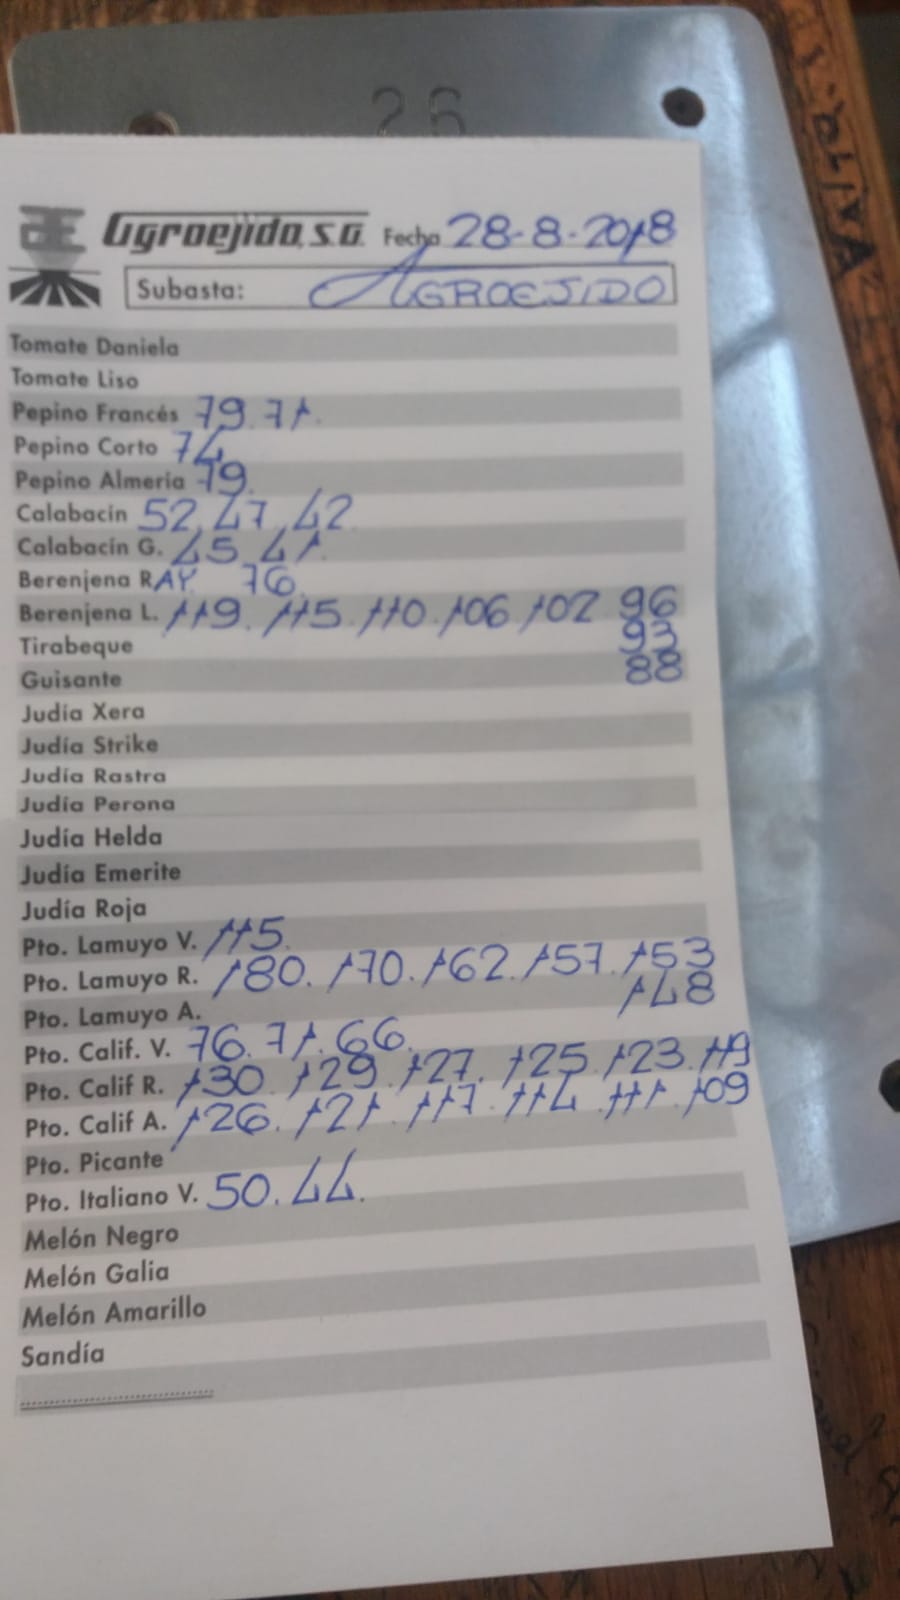 26
Agroejido, S.A. Fecha 28-8-2018
Subasta: AGROEJIDO
Tomate Daniela
Tomate Liso
Pepino Francés 79. 71.
Pepino Corto 74
Pepino Almería 79.
Calabacín 52. 47. 42
Calabacín G. 45. 41.
Berenjena RAY. 76.
Berenjena L. 119. 115. 110. 106 102 96
Tirabeque 93
Guisante 88
Judía Xera
Judía Strike
Judía Rastra
Judía Perona
Judía Helda
Judía Emerite
Judía Roja
Pto. Lamuyo V. 115.
Pto. Lamuyo R. 180. 170. 162. 157. 153
Pto. Lamuyo A. 148
Pto. Calif. V. 76. 71. 66.
Pto. Calif R. 130. 129. 127. 125. 123. 119
Pto. Calif A. 126. 121. 117. 114. 111. 109
Pto. Picante
Pto. Italiano V. 50. 44.
Melón Negro
Melón Galia
Melón Amarillo
Sandía